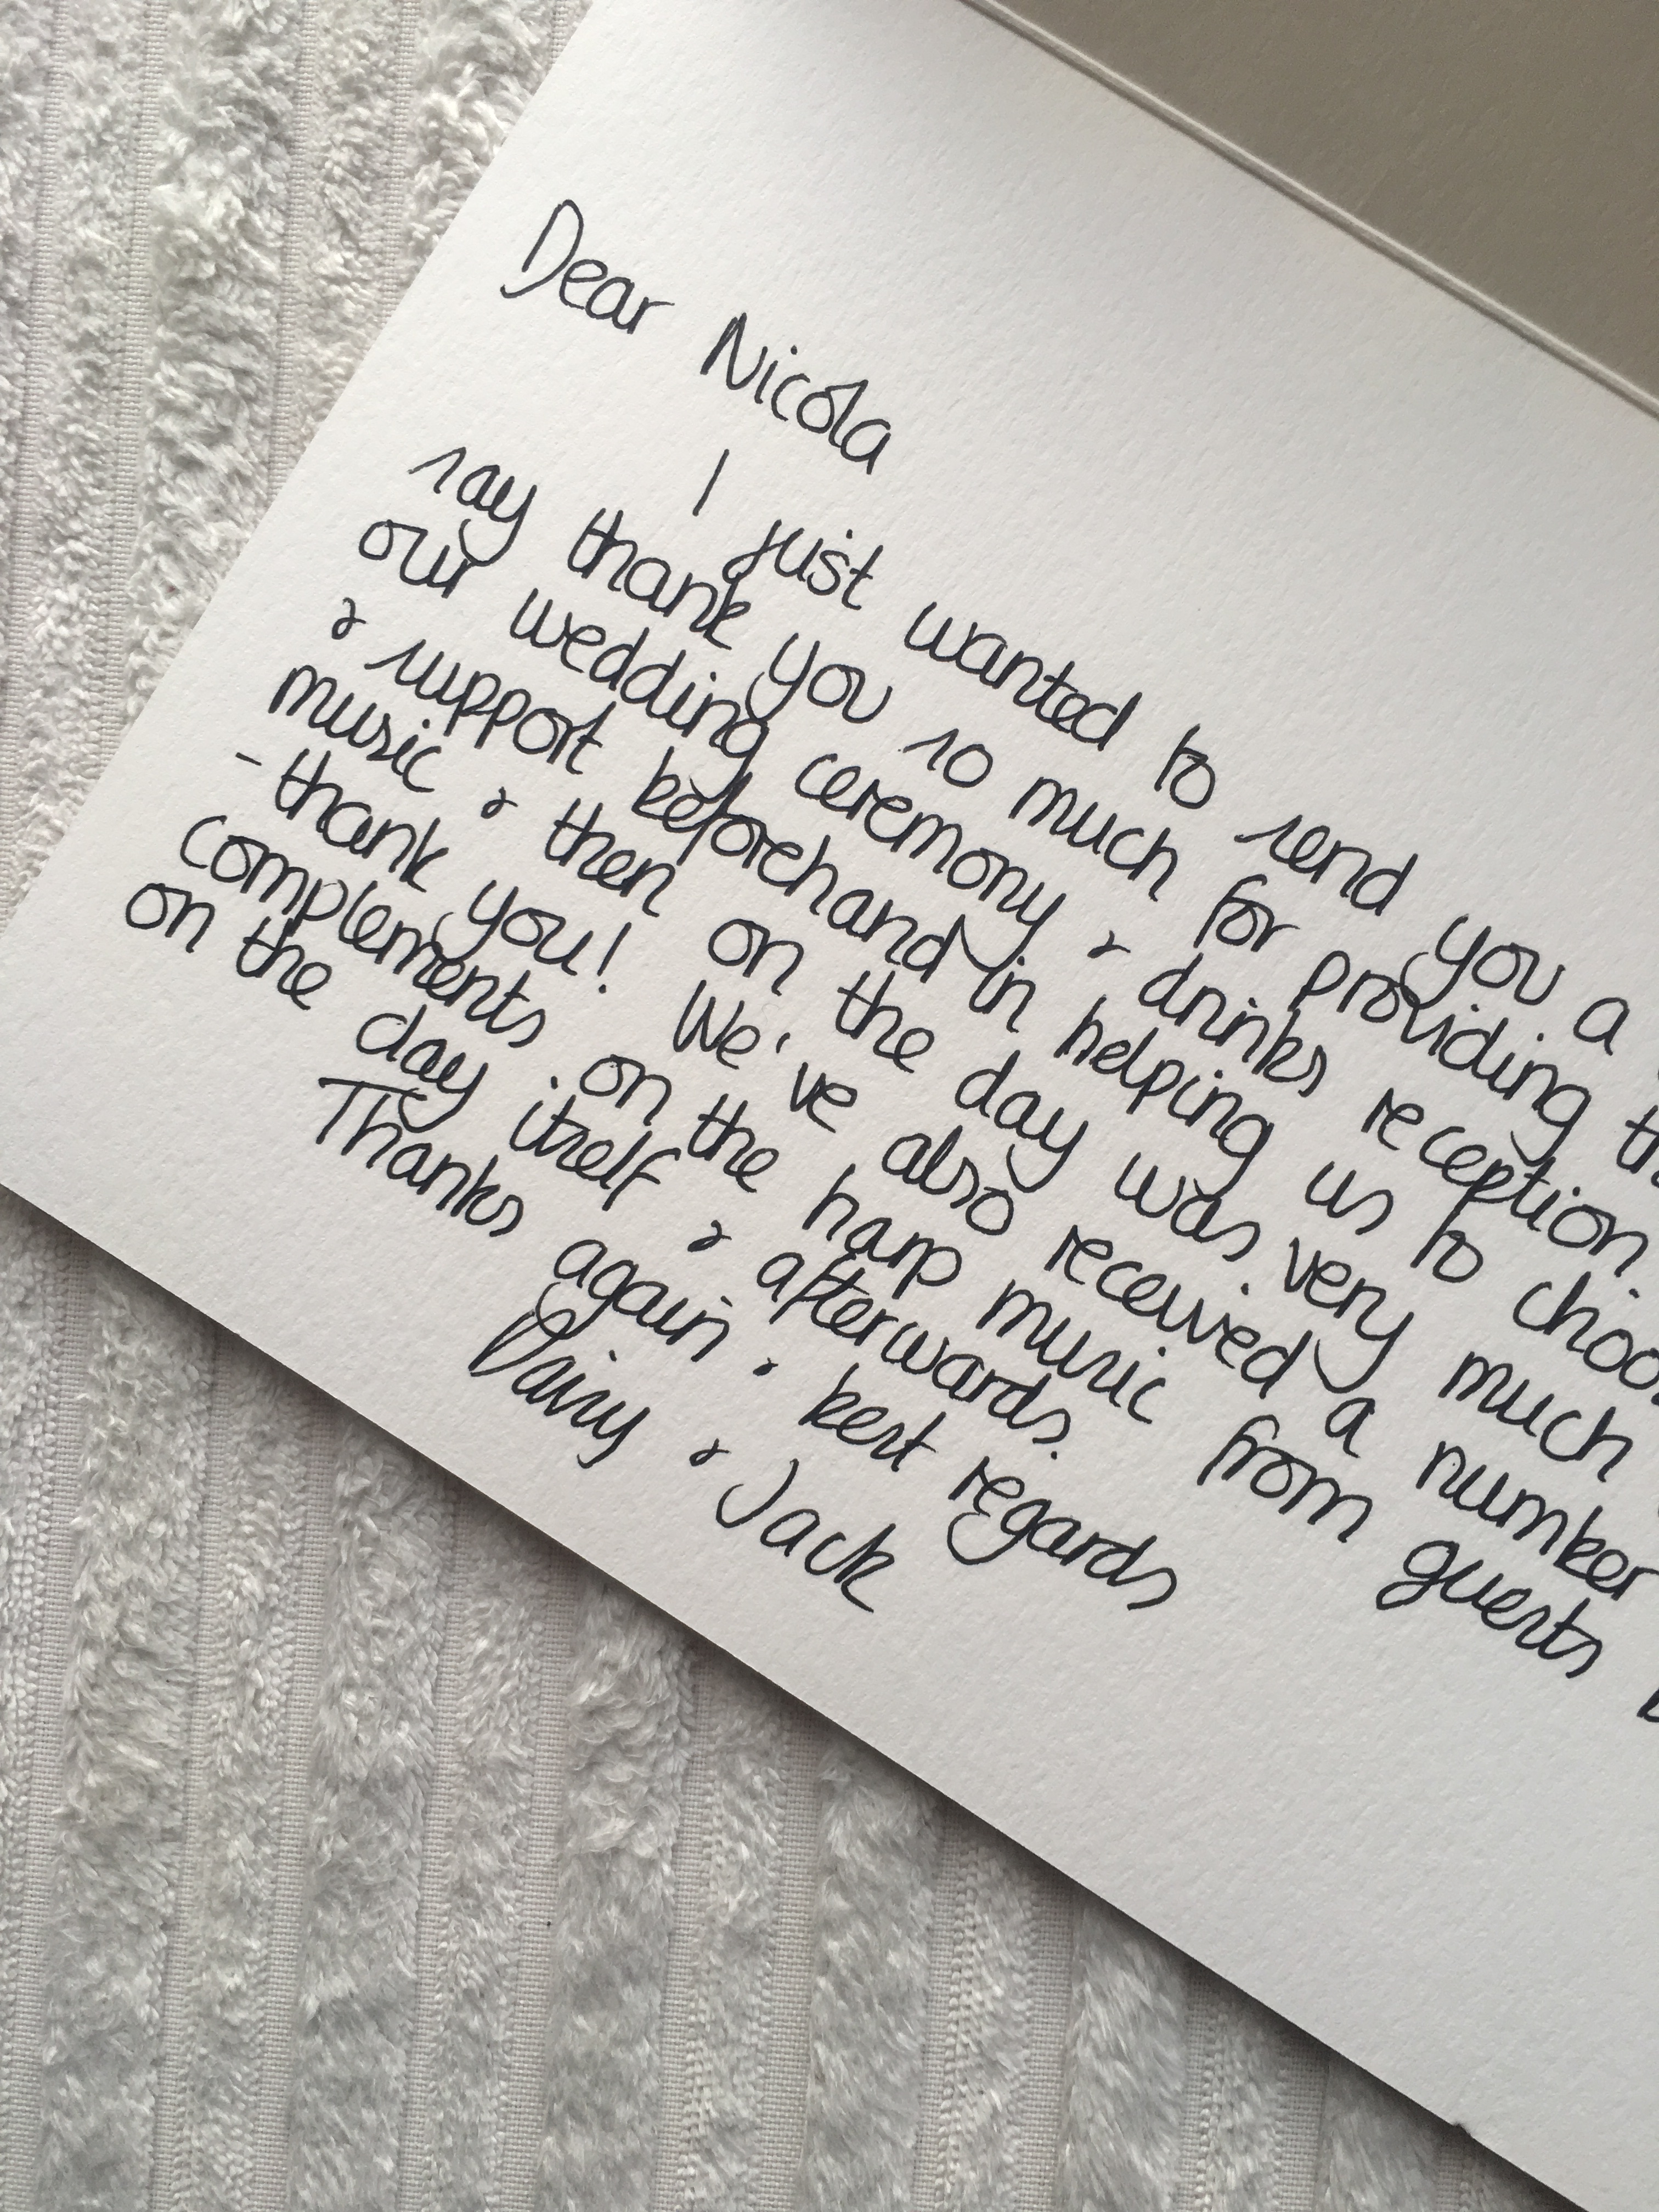 Dear Nicola
I just wanted to send you a
say thank you so much for providing
our wedding ceremony & drinks reception.
& support beforehand in helping us to
music & then on the day was very much
- thank you! We've also received a number
complements on the harp music from guests
on the day itself & afterwards.
Thanks again & best regards
Daisy & Jack